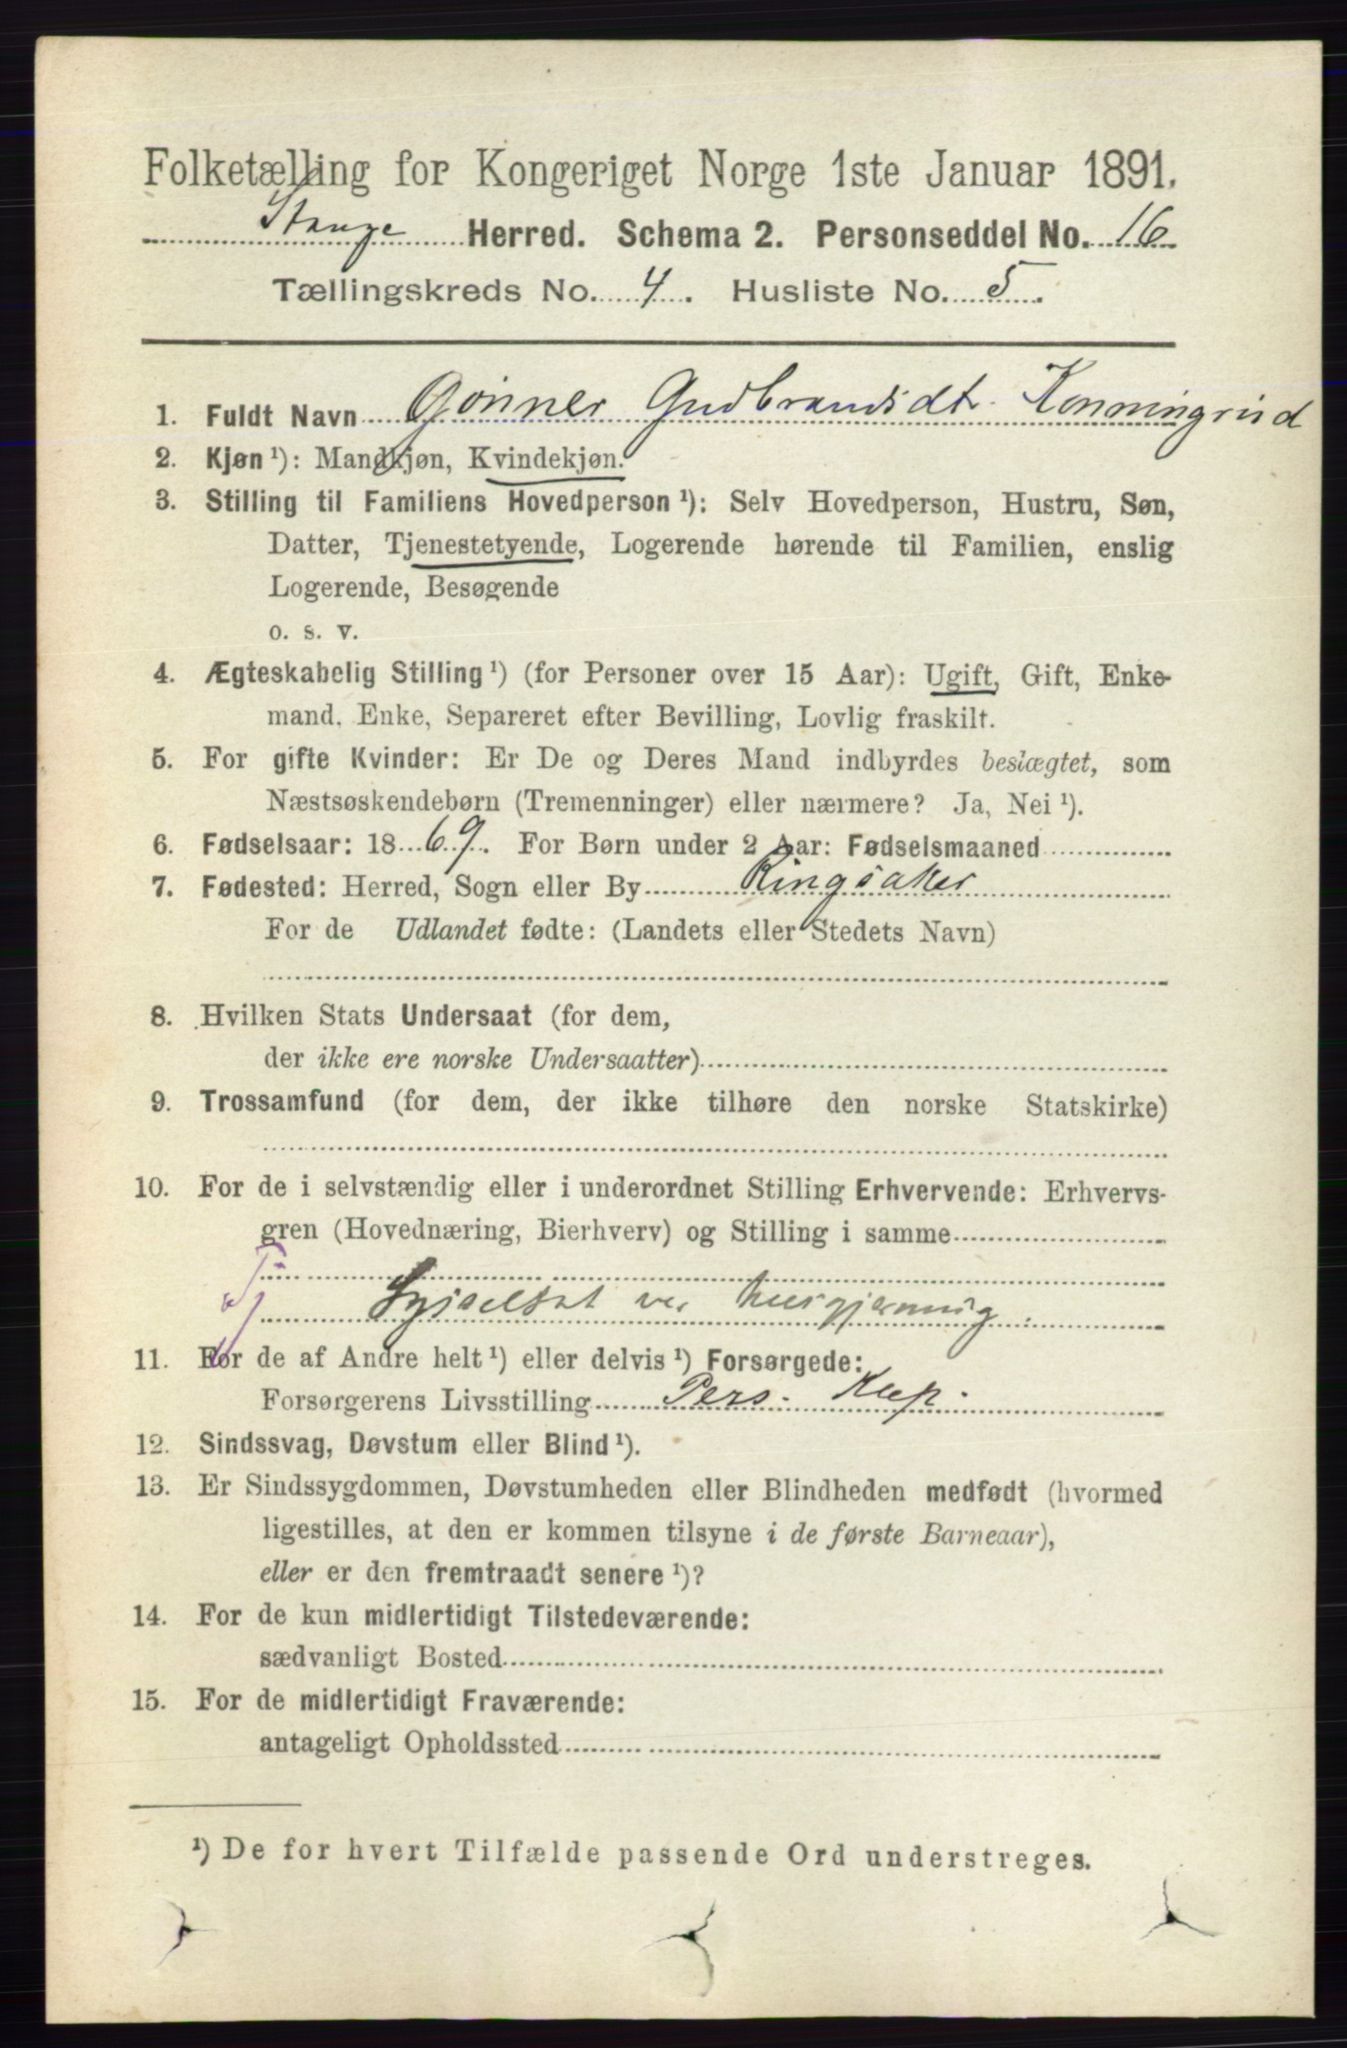 Folketælling for Kongeriget Norge 1ste Januar 1891.
Stange Herred. Schema 2. Personseddel No. 16
Tællingskreds No. 4. Husliste No. 5.
1. Fuldt Navn Gudbrandsdt.
2. Kjøn ¹): Mandkjøn, Kvindekjøn.
3. Stilling til Familiens Hovedperson ¹): Selv Hovedperson, Hustru, Søn,
Datter, Tjenestetyende, Logerende hørende til Familien, enslig
Logerende, Besøgende
o. s. v.
4. Ægteskabelig Stilling ¹) (for Personer over 15 Aar): Ugift, Gift, Enke-
mand, Enke, Separeret efter Bevilling, Lovlig fraskilt.
5. For gifte Kvinder: Er De og Deres Mand indbyrdes beslægtet, som
Næstsøskendebørn (Tremenninger) eller nærmere? Ja, Nei ¹).
6. Fødselsaar: 1869. For Børn under 2 Aar: Fødselsmaaned
7. Fødested: Herred, Sogn eller By Ringsaker
For de Udlandet fødte: (Landets eller Stedets Navn)
8. Hvilken Stats Undersaat (for dem,
der ikke ere norske Undersaatter)
9. Trossamfund (for dem, der ikke tilhøre den norske Statskirke)
10. For de i selvstændig eller i underordnet Stilling Erhvervende: Erhvervs-
gren (Hovednæring, Bierhverv) og Stilling i samme
Sysselsat ve husgjerning.
11. For de af Andre helt ¹) eller delvis ¹) Forsørgede:
Forsørgerens Livsstilling Pers.
12. Sindssvag, Døvstum eller Blind ¹).
13. Er Sindssygdommen, Døvstumheden eller Blindheden medfødt (hvormed
ligestilles, at den er kommen tilsyne i de første Barneaar),
eller er den fremtraadt senere ¹)?
14. For de kun midlertidigt Tilstedeværende:
sædvanligt Bosted
15. For de midlertidigt Fraværende:
antageligt Opholdssted
¹) De for hvert Tilfælde passende Ord understreges.